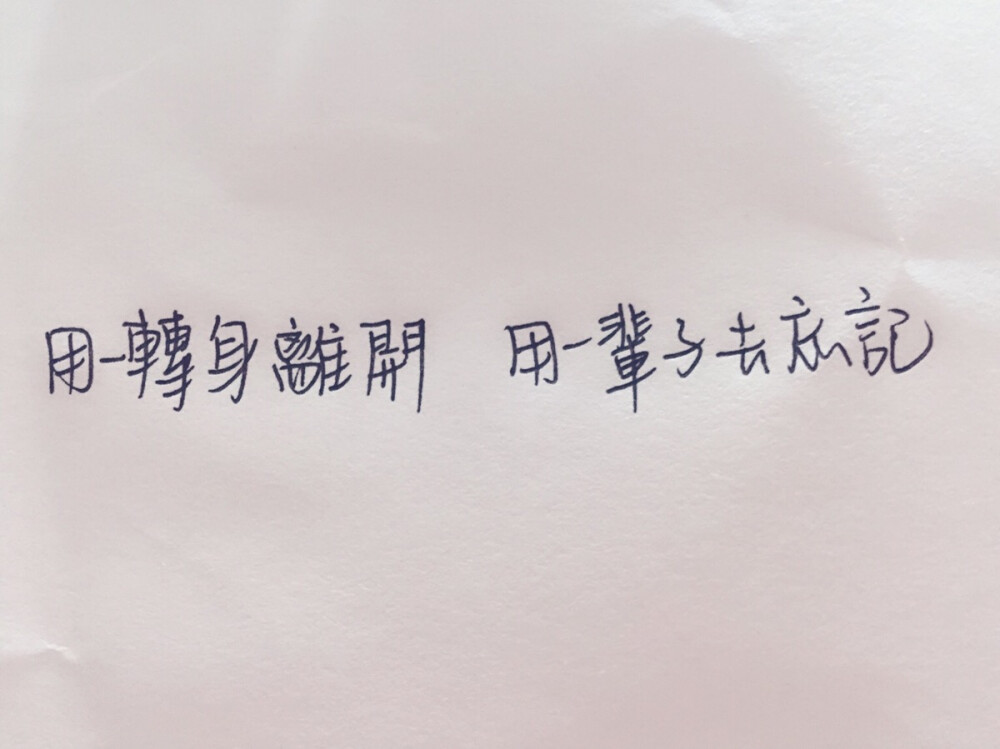 用一轉身離開 用一輩子去忘記